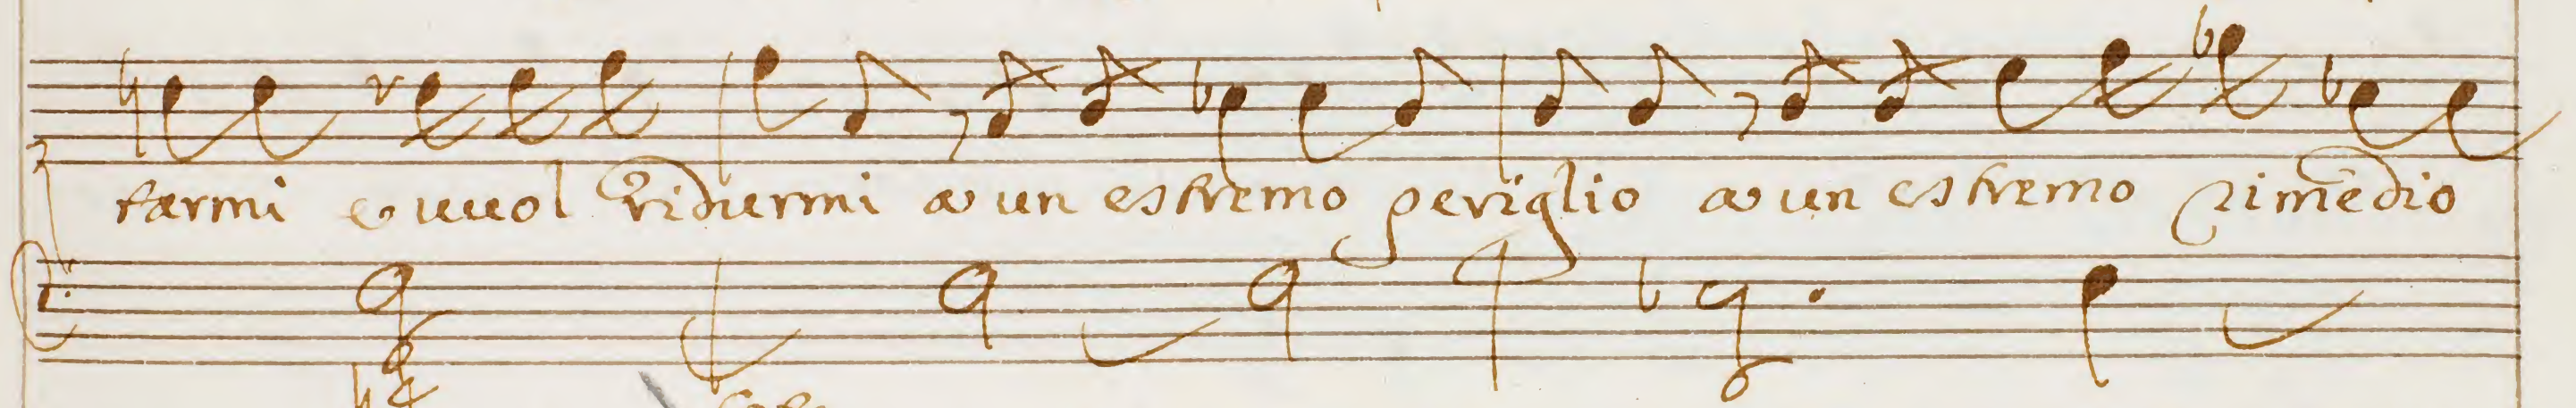 farmi e uuol ridurmi a un estremo periglio a un estremo rimedio